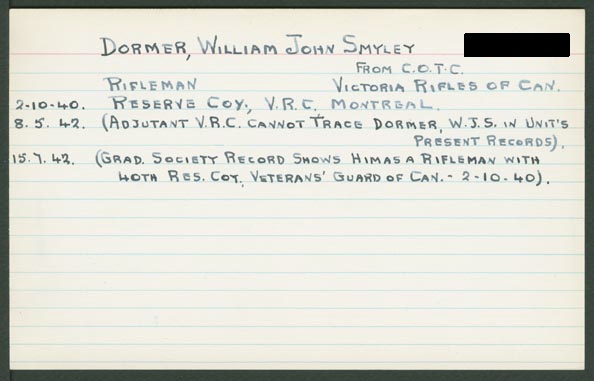 DORMER, WILLIAM JOHN SMYLEY
FROM C.O.T.C.
RIFLEMAN VICTORIA RIFLES OF CAN.
2-10-40. RESERVE COY., V.R.C. MONTREAL.
8. 5. 42. (ADJUTANT V.R.C. CANNOT TRACE DORMER, W.J.S. IN UNIT'S
PRESENT RECORDS).
15.7.42. (GRAD. SOCIETY RECORD SHOWS HIM AS A RIFLEMAN WITH
40TH RES. COY. VETERANS' GUARD OF CAN. - 2-10-40).